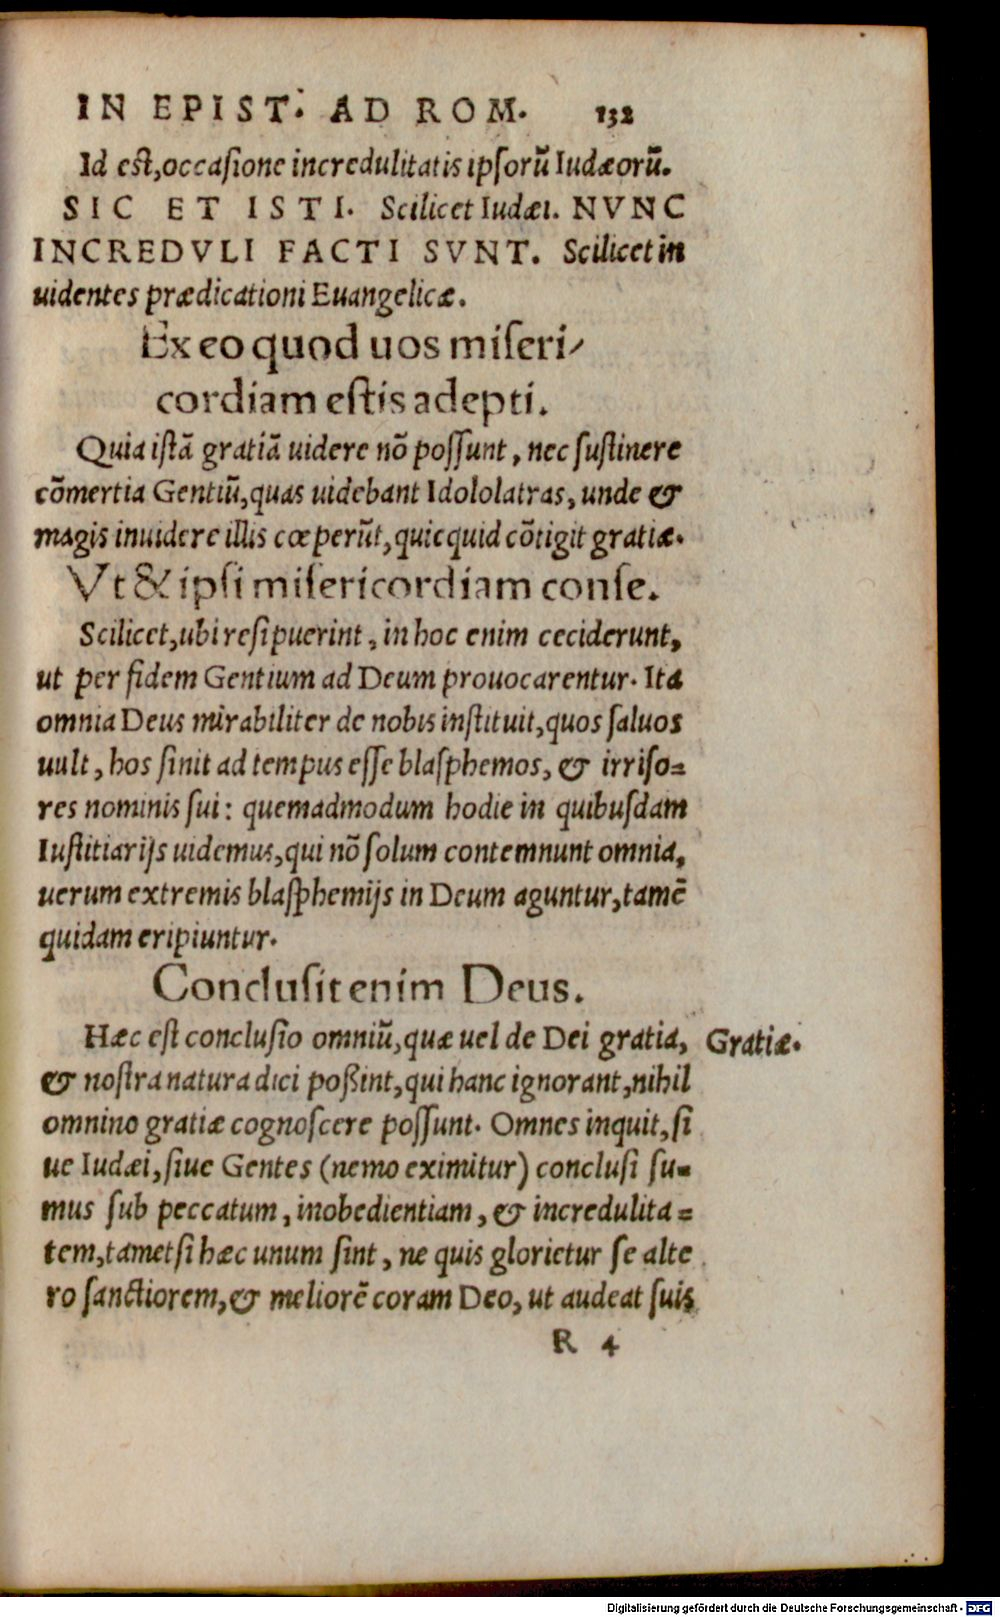 IN EPIST. AD ROM. 132
Id est, occasione incredulitatis ipsorũ Iudæorũ.
SIC ET ISTI. Scilicet Iudæi. NVNC
INCREDVLI FACTI SVNT. Scilicet in
uidentes prædicationi Euangelicæ.
Ex eo quod uos miseri-
cordiam estis adepti.
Quia istã gratiã uidere nõ possunt, nec sustinere
cõmertia Gentiũ, quas uidebant Idololatras, unde &
magis inuidere illis cœperũt, quicquid cõtigit gratiæ.
Vt & ipsi misericordiam conse.
Scilicet, ubi resipuerint, in hoc enim ceciderunt,
ut per fidem Gentium ad Deum prouocarentur. Ita
omnia Deus mirabiliter de nobis instituit, quos saluos
uult, hos sinit ad tempus esse blasphemos, & irriso=
res nominis sui: quemadmodum hodie in quibusdam
Iustitiarijs uidemus, qui nõ solum contemnunt omnia,
uerum extremis blasphemijs in Deum aguntur, tamẽ
quidam eripiuntur.
Conclusit enim Deus.
Hæc est conclusio omniũ, quæ uel de Dei gratia, Gratiæ.
& nostra natura dici poßint, qui hanc ignorant, nihil
omnino gratiæ cognoscere possunt. Omnes inquit, si
ue Iudæi, siue Gentes (nemo eximitur) conclusi su=
mus sub peccatum, inobedientiam, & incredulita=
tem, tametsi hæc unum sint, ne quis glorietur se alte
ro sanctiorem, & meliorẽ coram Deo, ut audeat suis
R 4
Digitalisierung gefördert durch die Deutsche Forschungsgemeinschaft - DFG